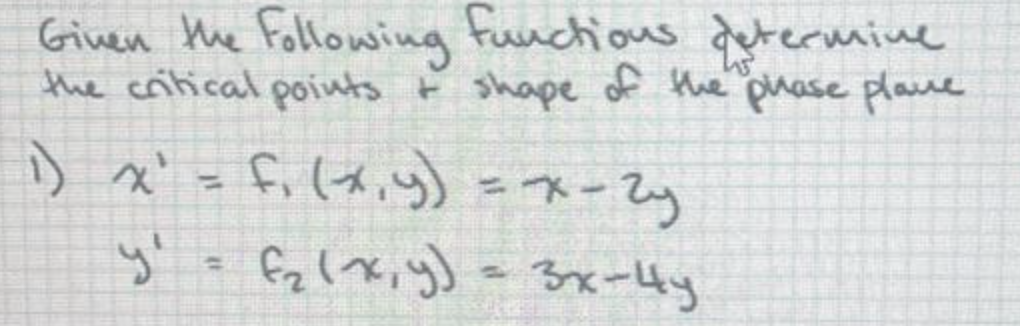 Given the following functions determine
the critical points + shape of the phase plane
1) x' = f₁ (x,y) = x - 2y
y' = f₂ (x,y) = 3x - 4y